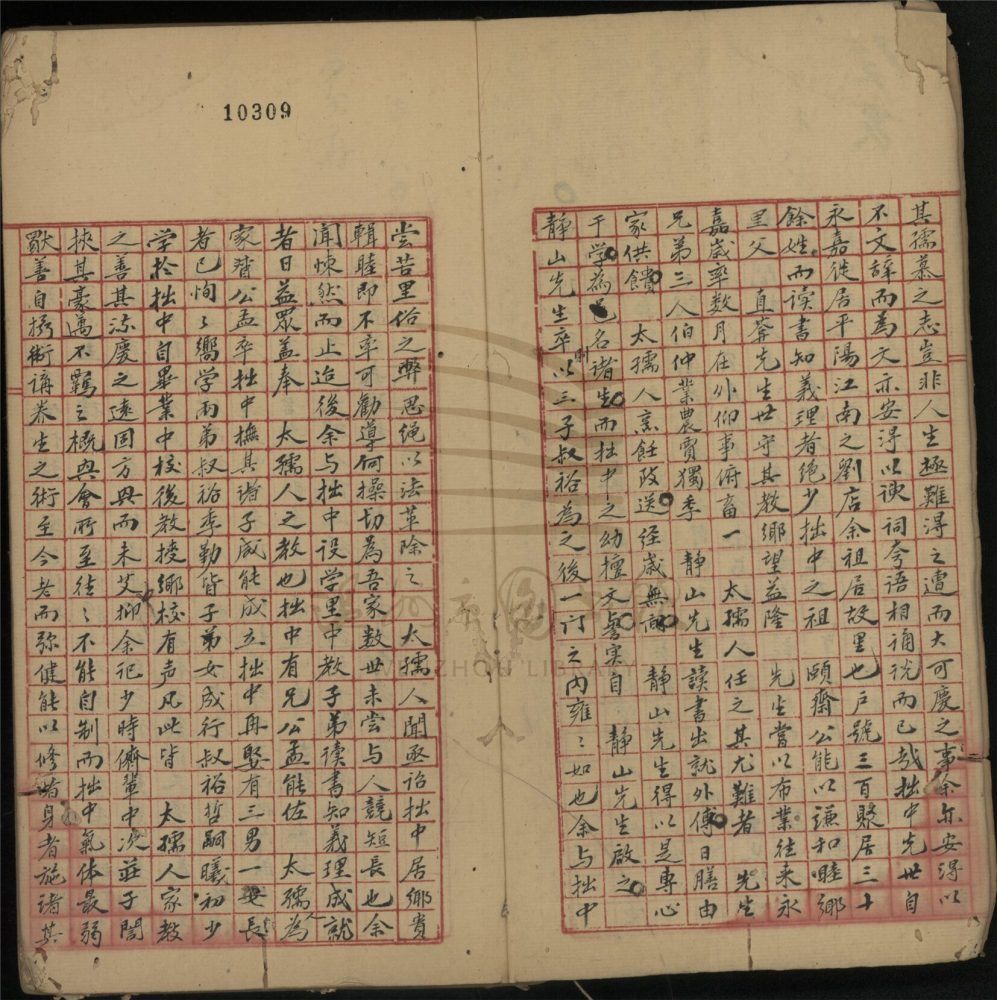 其孺慕之志豈非人生極難得之遭而大可慶之事余亦安得以
不文辭而為文亦安得以諛詞夸語相誦說而已哉拙中先世自
永嘉徙居平陽江南之劉店余祖居故里也戶號三百聚居三十
餘姓而读書知義理者绝少拙中之祖 頤齋公能以谦和睦鄉
里父 直菴先生世守其教鄉望益隆 先生嘗以布業往来永
嘉歲率数月在外仰事俯畜一 太孺人任之其尤難者 先生
兄弟三人伯仲業農賈獨季 静山先生讀書出就外傅日膳由
家供饋 太孺人烹飪致送经歲無 静山先生得以是專心
于学為邑名诸生而拙中之幼擅文譽实自 静山先生啟之
静山先生卒以三子叔裕為之後一门之内雍〻如也余与拙中
尝苦里俗之弊思绳以法革除之 太孺人聞亟诒拙中居鄉貴
輯睦即不率可勸導何操切為吾家数世未尝与人競短長也余
闻悚然而止迨後余与拙中设学里中教子弟读書知義理成就
者日益眾盖奉 太孺人之教也拙中有兄公孟能佐 太孺人為
家督公孟卒拙中撫其诸子咸能成立拙中再娶有三男一女長
者已恂〻嚮学兩弟叔裕季勤皆子弟女成行叔裕哲嗣曦初少
学於拙中自畢業中校後教授鄉校有声凡此皆 太孺人家教
之善其流慶之遠固方興而未艾抑余记少時儕輩中 莊子誾
挟其豪邁不羈之概與會所至往〻不能自制而拙中氣体最弱
獸善自 術講养生之術至今老而弥健能以修诸身者施诸其
10309
WENZHOU LIBRARY